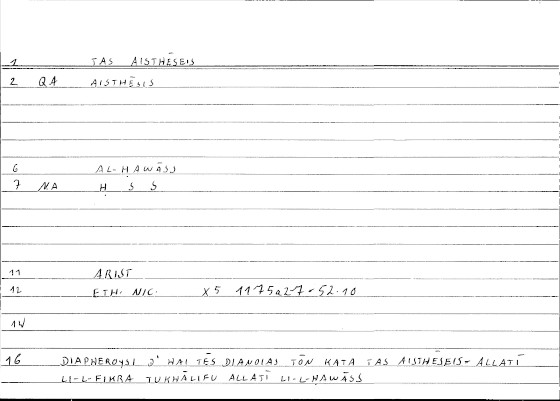 1 TAS AISTHĒSEIS
2 QA AISTHĒSIS
6 AL-ḤAWĀSS
7 NA Ḥ S S
11 ARIST
12 ETH. NIC. X 5 1175a27 - 52.10
14
16 DIAPHEROYSI D' HAI TĒS DIANOIAS TŌN KATA TAS AISTHĒSEIS - ALLATĪ
LI-L-FIKRA TUKHĀLIFU ALLATĪ LI-L-ḤAWĀSS